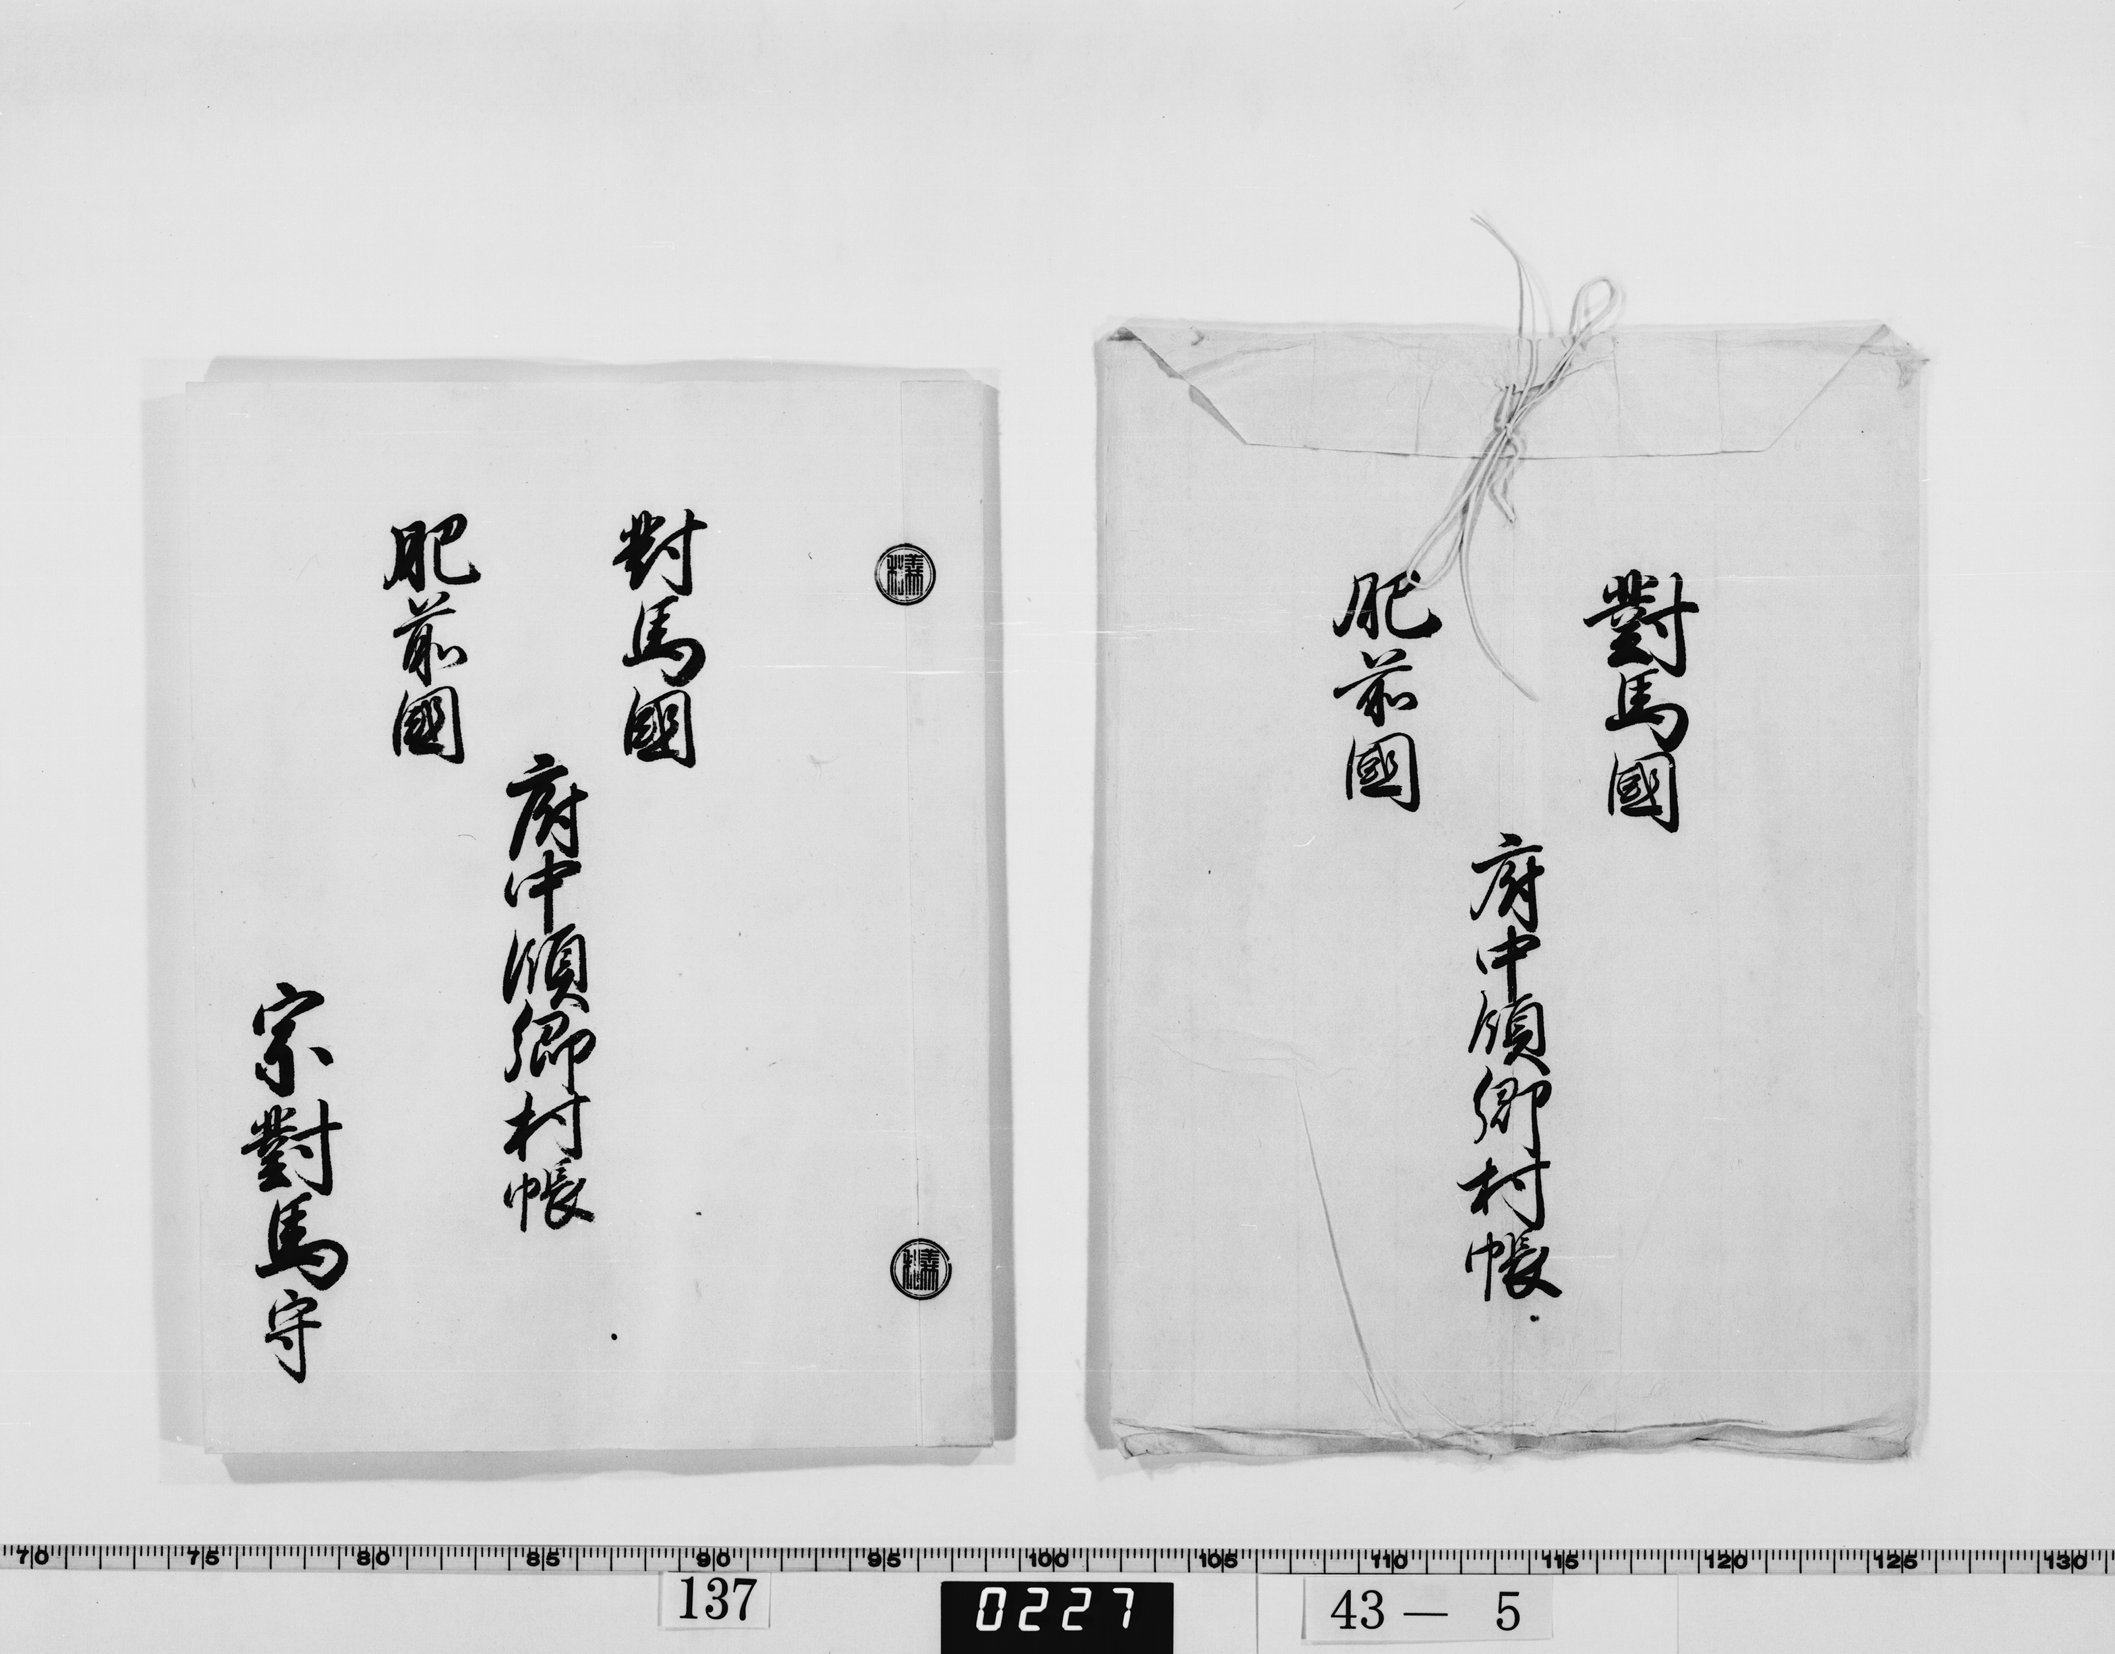 對馬國
肥前國
府中領郷村帳
對馬國
肥前國
府中領郷村帳
宗對馬守
70 75 80 85 90 95 100 105 110 115 120 125 130
137
0227
43— 5